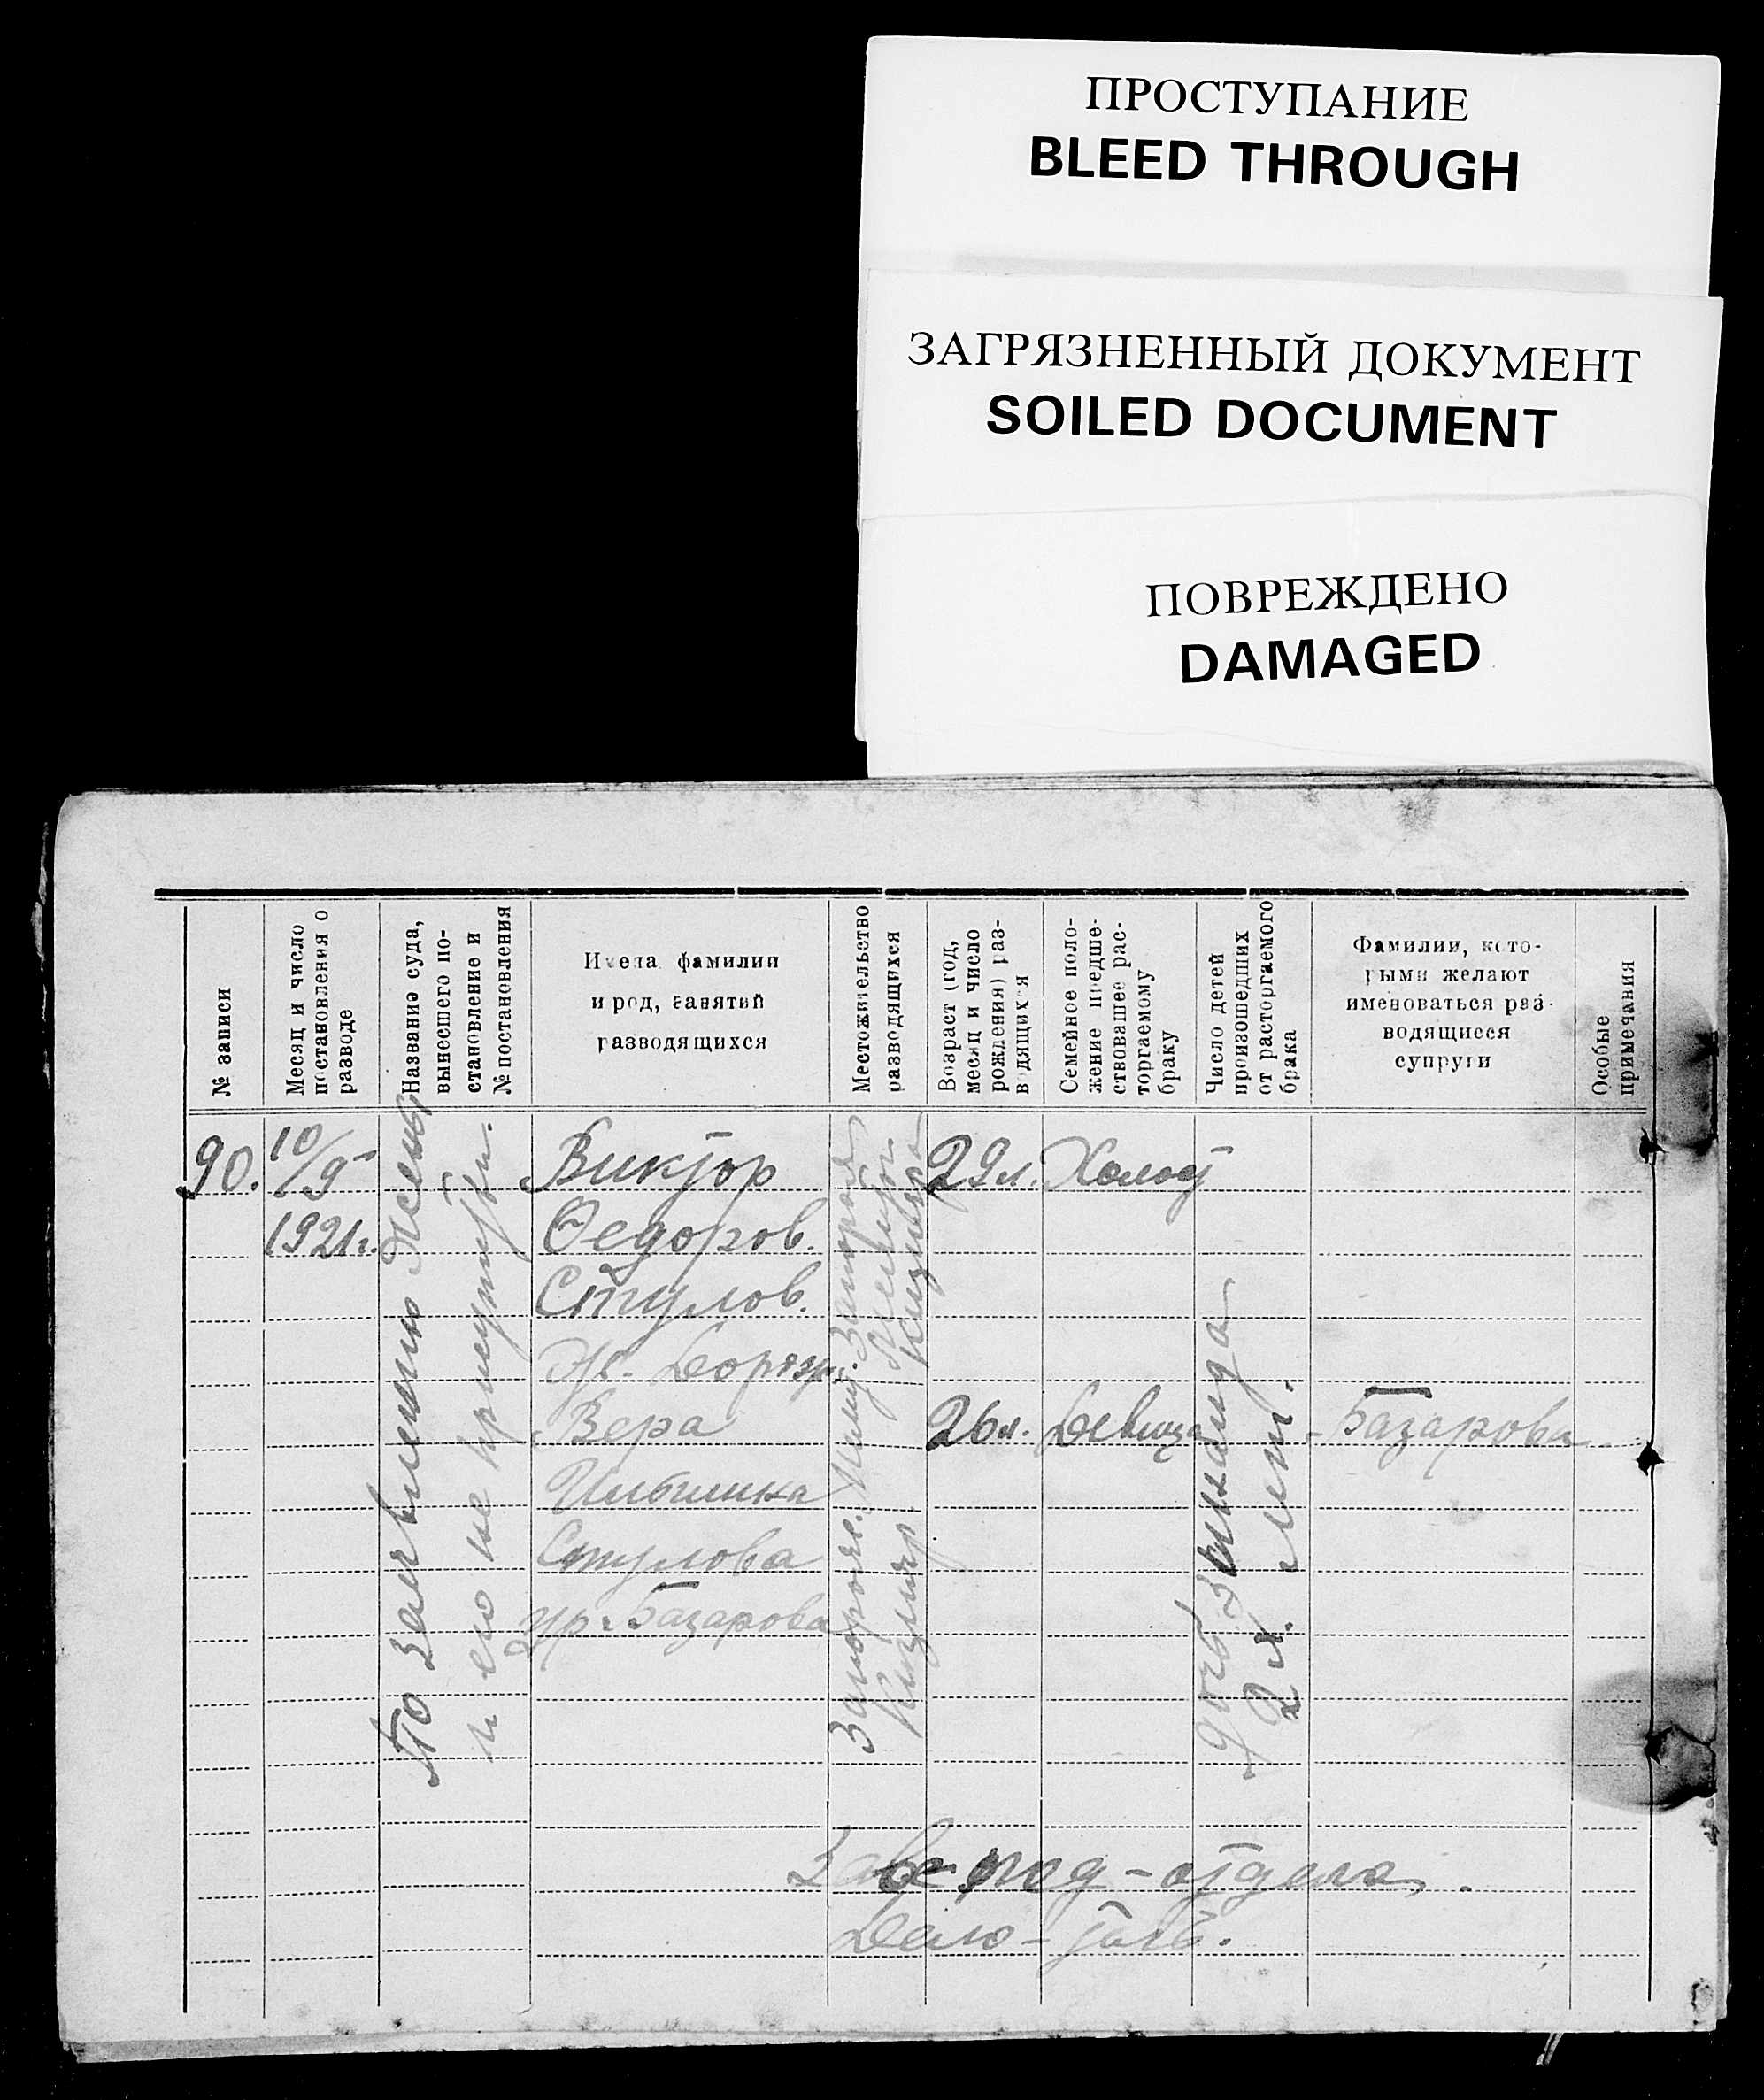 ПРОСТУПАНИЕ
BLEED THROUGH
ЗАГРЯЗНЕННЫЙ ДОКУМЕНТ
SOILED DOCUMENT
ПОВРЕЖДЕНО
DAMAGED
№ записи
Месяц и число
постановления о
разводе
Название суда,
вынесшего по-
становление и
№ постановления
Имена фамилии
и род, занятий
разводящихся
Местожительство
разводящихся
Возраст (год,
месяц и число
рождения) раз-
водящихся
Семейное поло-
жение предше-
ствовавшее рас-
торгаемому
браку
Число детей
произошедших
от расторгаемого
брака
Фамилии, кото-
рыми желают
именоваться раз-
водящиеся
супруги
Особые
примечания
90.
10/9
1921г.
По
и его не
Виктор
Федоров.
Стулов.
Вера
Стулова
ур. Базарова
Кизляр
29л.
Холост
26л.
Девица
дочь Зинаида
2 л.
Базарова
Зав. под-отдела
Дело-